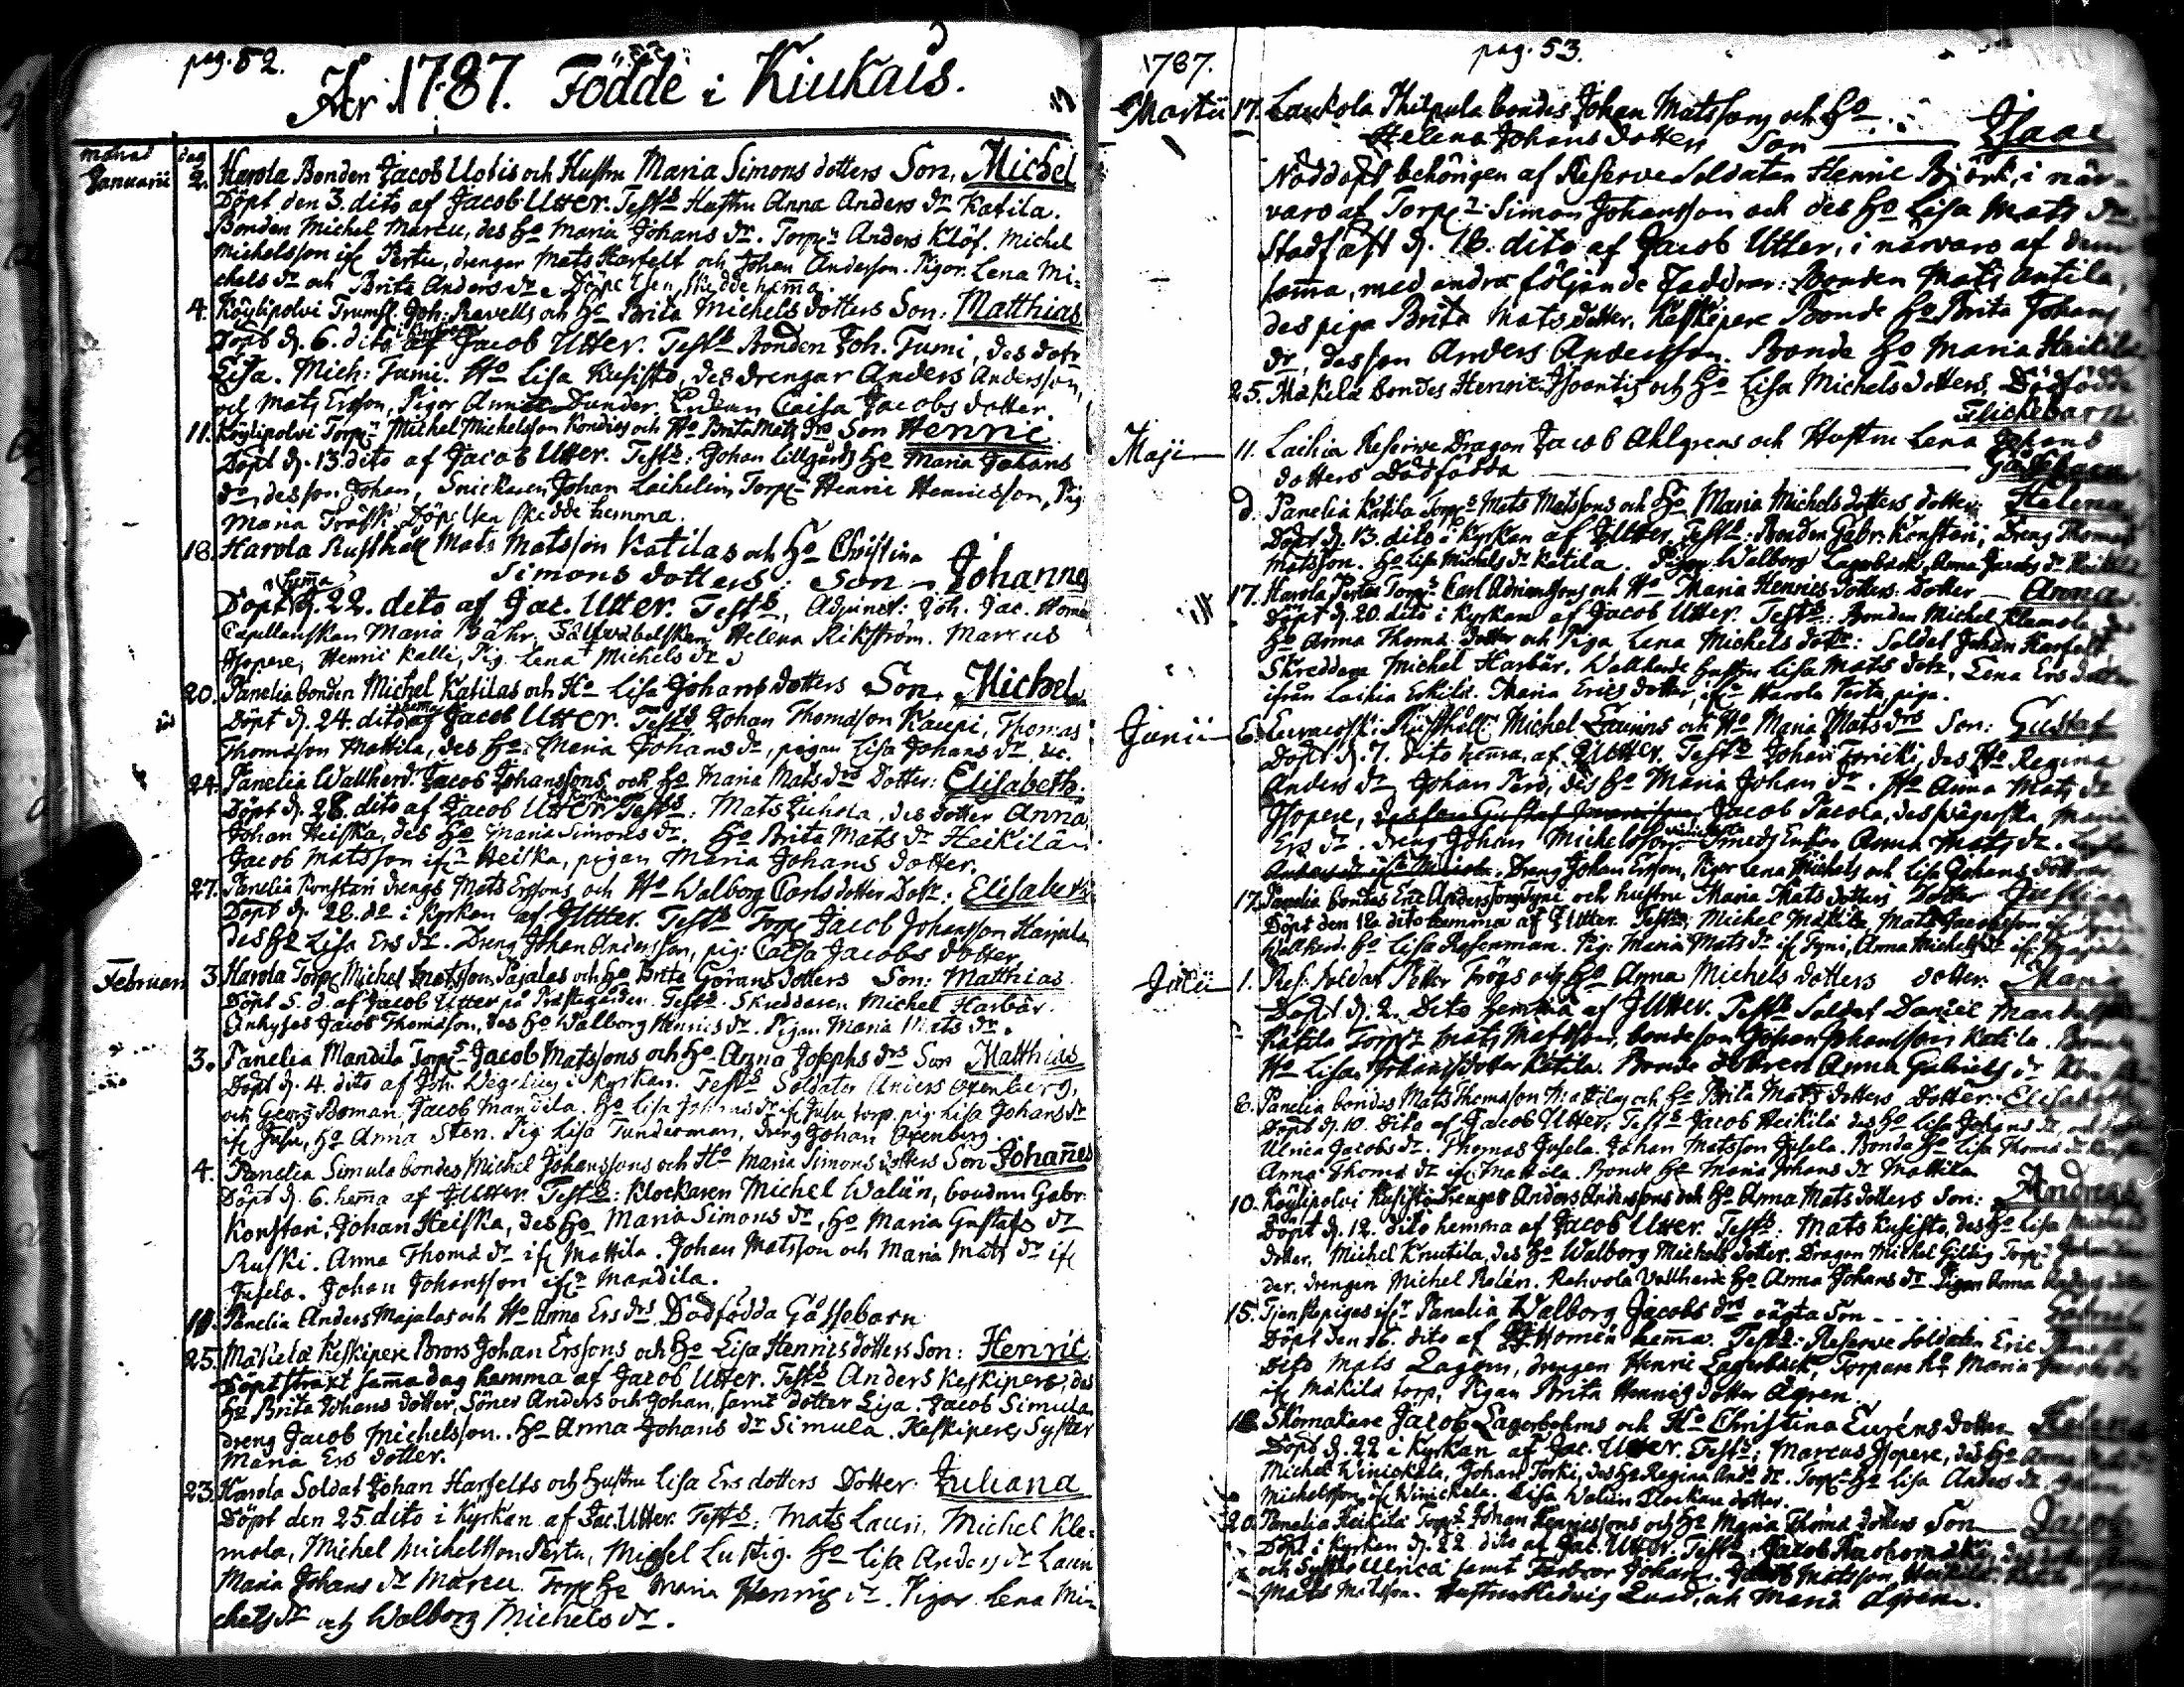 pag. 52.
Åhr 1787. Födde i Kiukais.
månad dag
Januarii 2. Harola Bonden Jacob Uotis och Hustru Maria Simons dotters Son, Michel
Döpt den 3. dito af Jacob Utter. Test: Hustru Anna Anders dr Katila.
Bonden Michel Marcu, des Ho Maria Johans dr. Torp: Anders Klöf. Michel
Michelsson if Pertu, drengar Mats Harfelt och Johan Andersson. Pigor. Lena Mi-
chels dr och Brita Anders dr. Döpelsen skedde hemma.
4. Köylipolvi Trumsl. Joh: Ravells och Ho Brita Michels dotters Son: Matthias
Döpt d. 6. dito i kyrkan af Jacob Utter. Test: Bonden Joh. Tumi, des dotr
Lisa. Mich: Tumi. Ho Lisa Kusisto, des drengar Anders Andersson,
och Mats Ersson, Pigor Anna Dunder. Enkan Caisa Jacobs dotter.
11. Köylipolvi Torp: Michel Michelsson Kondies och Ho Brita Mats drs Son Henric
Döpt d. 13. dito af Jacob Utter. Test: Johan Lillgårds Ho Maria Johans
dr, des son Johan, Snickaren Johan Laihelin, Torp: Henric Henricsson, Pig
Maria Träsk. Döpelsen skedde hemma.
18. Harola Rusthåll Mats Matsson Katilas och Ho Christina
Simons dotters: Son – Johannes
Döpt hemma d. 22. dito af Jac. Utter. Test, Adjunct: Joh. Jac. Homen
Capellanskan Maria Bähr, Helena Rikström. Marcus
Isopere, Henric Kalli, Pig. Lena Michels dr
20. Panelia bonden Michel Katilas och Ho Lisa Johans dotters Son, Michel
Döpt d. 24. dito hemma af Jacob Utter. Test: Johan Thomasson Kaupi, Thomas
Thomasson Mattila, des Ho: Maria Johans dr, pigan Lisa Johans dr. etc.
24. Panelia Wallherd. Jacob Johanssons och Ho Maria Mats drs Dotter: Elisabeth.
Döpt d. 28. dito af Jacob Utter i kyrkan Test: Mats Juhola, des dotter Anna
Johan Heiska, des Ho Maria Simons dr. Ho Brita Mats dr Heikilä
Jacob Matsson if Heiska, pigan Maria Johans dotter.
27. Panelia Konstari drengs Mats Erssons och Ho Walborg Carls dotter Dotr: Elisabeth
Döpt d. 28. do i Kyrkan af J Utter. Test: Torp: Jacob Johansson Harjula
des Ho Lisa Ers dr. Dreng Johan Andersson, pig: Caisa Jacobs dotter.
Februari 3. Harola Torp: Michel Matsson Pajalas och Ho Brita Görans dotters Son: Matthias.
Döpt 5. d. af Jacob Utter på Prestegården. Test: Skreddaren Michel Harbär.
Jacob Thomasson, des Ho Walborg Henrics dr. Pigan Maria Mats dr.
3. Panelia Mandila Torp: Jacob Matssons och Ho Anna Josephs drs Son Matthias
Döpt d. 4. dito af Joh. Wegelius i Kyrkan. Test: Soldater Anders Oxenberg,
och Georg Boman, Jacob Mandila. Ho Lisa Johans dr if Jusu torp. pig Lisa Johans dr
if Jusu, Ho Anna Sten. Pig Lisa Tunderman, dreng Johan Oxenberg.
4. Panelia Simula bondes Michel Johanssons och Ho Maria Simons dotters Son Johañes
Döpt d. 6. hema af J Utter. Test: Klockaren Michel Walin, bonden Gabr.
Konstari, Johan Heiska, des Ho Maria Simons dr, Ho Maria Gustafs dr
Ruski. Anna Thomä dr if Mattila. Johan Matsson och Maria Mats dr if
Jusela. Johan Johansson if Mandila.
11. Panelia Anders Majalas och Ho Anna Ers drs Dödfödda Gåssebarn
25. Mäkelä Keskipere Brors Johan Erssons och Ho Lisa Henrics dotters Son: Henric.
Döpt straxt samma dag hemma af Jacob Utter. Test: Anders Keskipere, des
Ho Brita Johans dotter, Söner Anders och Johan, samt dotter Lisa. Jacob Simula,
dreng Jacob Michelsson. Ho Anna Johans dr Simula. Keskiperes Syster
Maria Ers dotter.
23. Harola Soldat Johan Harfelts och Hustru Lisa Ers dotters Dotter Juliana
Döpt den 25 dito i Kyrkan af Jac. Utter. Test: Mats Lauri, Michel Kle-
mola, Michel Michelsson Pertu, Michel Lustig. Ho Lisa Anders dr Lauri
Maria Johans dr Marcu. Torp: Ho Maria Henrics dr. Pigor Lena Mi-
chels dr och Walborg Michels dr.
1787. pag. 53.
Martii 17. Laukola Thilpula bondes Johan Matssons och Ho
Helena Johans dotters Son — Isaac
Nöddopt behörigen af Reserve Soldaten Henric Björk, i när-
varo af Torp: Simon Johansson och des Ho Lisa Mats dr.
Stadfäst d. 18. dito af Jacob Utter, i närvaro af dem
samma, med andra följande Faddrar: Bonden Mats Antila,
des piga Brita Mats dotter. Keskipere Bonde Ho Brita Johans
dr, des son Anders Andersson. Bonde Ho Maria Heikilä
25. Mäkelä Bondes Henric Isoantis och Ho Lisa Michels dotters Dödfödda
Flickebarn
Maji 11. Laihia Reserve Dragon Jacob Ahlgrens och Hustru Lena Johans
dotters Dödfödda — Gåssebarn
d. Panelia Katila Torp: Mats Matssons och Ho Maria Michels dotters dotter Helena
Döpt d. 13. dito i Kyrkan af J Utter. Test: Bonden Gabr: Konstari, Dreng Thomas
Matsson. Ho Lisa Michels dr Katila. Pigor Walborg Lagerbäck, Anna Jacobs dr
17. Harola Pertu Torp: Carl Adrianssons och Ho Maria Henrics dotters Dotter — Anna.
Döpt d. 20. dito i Kyrkan af Jacob Utter. Test: Bonden Michel Klemola, des
Ho Anna Thomä dotter och Piga Lena Michels dotr: Soldat Johan Harfelt,
Skreddare Michel Harbär. Wallherde hustru Lisa Mats dotr, Lena Ers dotter
ifrån Laihia Eskilä. Maria Erics dotter, if Harola Pertu piga.
Junii 6. Eurakosk: Rusthåll: Michel Launns och Ho Maria Mats drs Son: Gustaf
Döpt d. 7. dito hemma af J Utter. Test: Johan Torcki, des Ho Regina
Anders dr, Johan Pero, des Ho Maria Johan dr. Ho Anna Mats dr
Isopere, Jacob Pacola, des svägerska Maria
Ers dr. dreng Johan Michelsson Smeds Enkan Anna Mats dr.
Dreng Johan Ersson, Pigor Lena Michels och Lisa Johans döttrar
17. Panelia bondes Eric Anderssons och hustru Maria Mats dotters Dotter Justina
Döpt den 18. dito hemma af J Utter. Test: Michel Mattila, Mats Jacobsson
Wallherd. Ho Lisa Rosenman. Pig: Maria Mats dr if, Anna Michels dr if
Julii 1. Res: Soldat Petter Trögs och Ho Anna Michels dotters dotter: Maria
Döpt d. 2. Dito hemma af J Utter. Test: Soldat Daniel
Katila Torp: Mats Matsson, bondeson Johan Johansson Katila.
Ho Lisa Johans dotter Katila. Bonde dottren Anna Gabriels dr
8. Panelia bondes Mats Thomasson Mattilas och Ho Brita Mats dotters Dotter: Elisabeth
Döpt d. 10. Dito af Jacob Utter. Test: Jacob Heikilä des Ho Lisa Johans dr
Ulrica Jacobs dr. Thomas Jusela. Johan Matsson Jusela. Bonde Ho Lisa Thomä dr
Anna Thomä dr if Mattila. Bonde Ho Maria Johans dr Mattila
10. Köylipolvi Kusisto Drenges Anders Anderssons och Ho Anna Mats dotters Son: Andreas
Döpt d. 12. dito hemma af Jacob Utter. Test: Mats Kusisto, des Ho Lisa Michels
dotter, Michel Knutila, des Ho Walborg Michels dotter. Dragon Michel Gillig Torp:
der, drengen Michel Rolin. Rahvola Vallherde Ho Anna Johans dr. Pigan Anna
15. Tjenstepigas if Panelia Walborg Jacobs drs oägta Son — Gabriel
Döpt den 16. dito af Homén hemma. Test: Reserve Soldaten Eric
Dito Mats Lagom, drengen Henric Lagerbäck, Torpare Ho Maria
if Mäkilä torp, Pigan Brita Henrics dotter Ågren.
18. Skomakare Jacob Lagerbohms och Ho Christina Euréns dotter Helena
Döpt d. 22 i Kyrkan af Jac. Utter. Test: Marcus Isopere, des Ho Anna
Michel Winickala, Johan Torki, des Ho Regina And: dr. Torp: Ho Lisa Anders dr
Michelsson if Winickala. Lisa Walin Klockare dotter.
20. Panelia Heikilä Torp: Johan Henricssons och Ho Maria Thomä dotters Son — Jacob
Döpt i Kyrkan d. 22. dito af Jac. Utter. Test: Jacob
och Syster Ulrica samt Farbror Johan. Jacob Matsson Heikilä.
Mats Matsson. Hustru Hedvig Lund, och Maria Ågren.